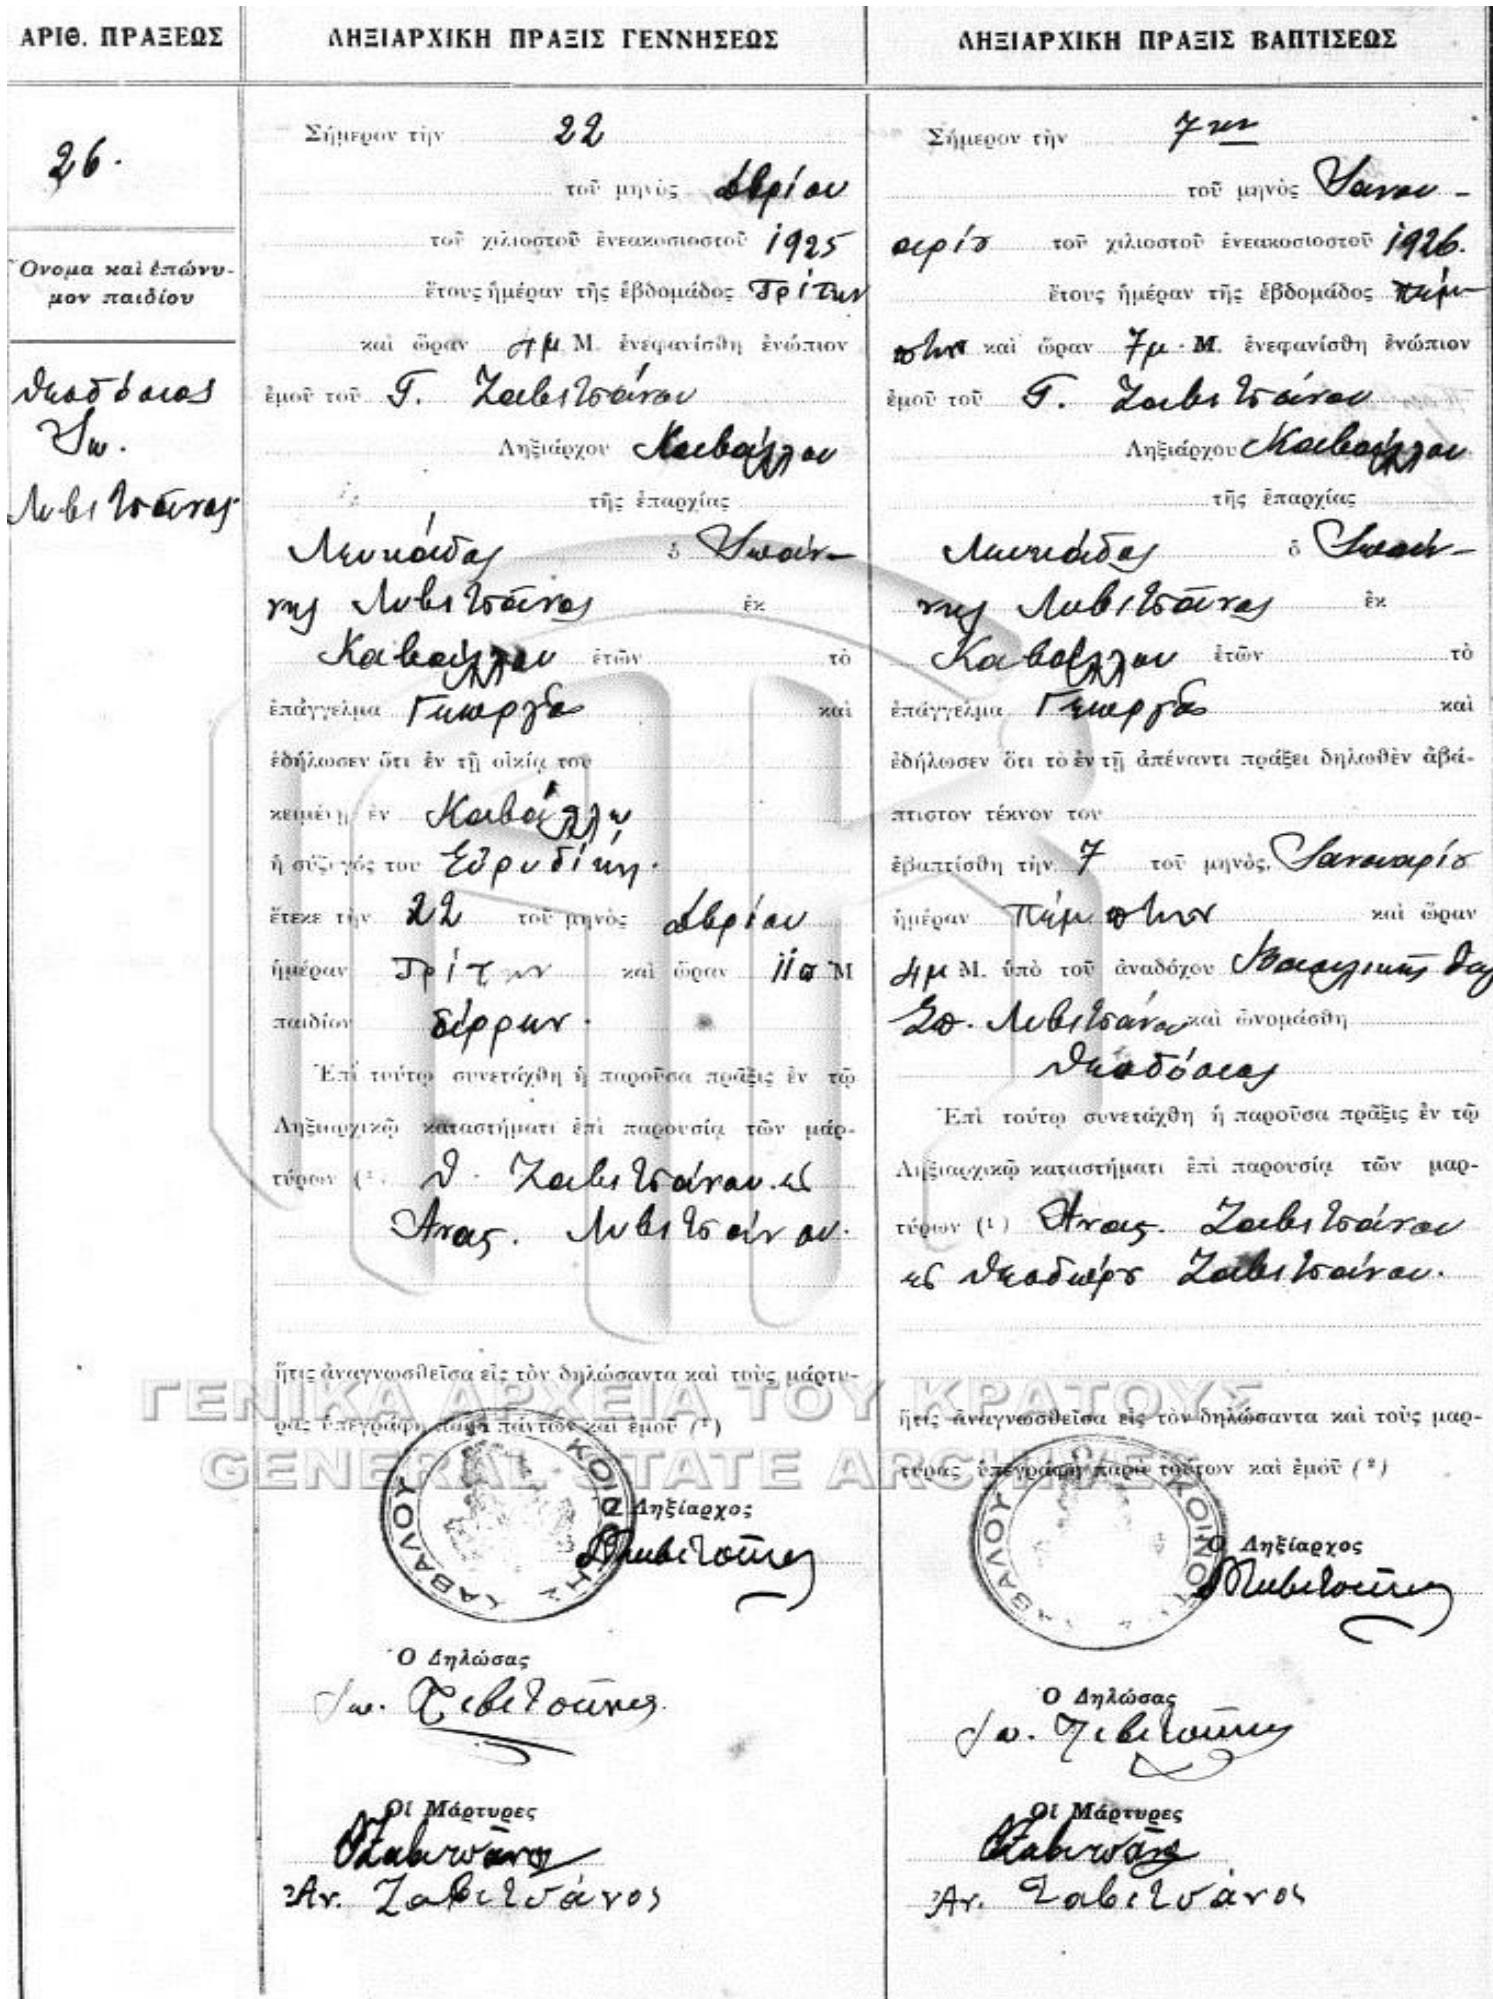 ΑΡΙΘ. ΠΡΑΞΕΩΣ
26.
Ὄνομα καὶ ἐπώνυ-
μον παιδίου
Θεοδόσιος
Ἰω.
Λιβιτσᾶνος
ΛΗΞΙΑΡΧΙΚΗ ΠΡΑΞΙΣ ΓΕΝΝΗΣΕΩΣ
Σήμερον τὴν 22
τοῦ μηνὸς Δβρίου
τοῦ χιλιοστοῦ ἐνεακοσιοστοῦ 1925
ἔτους ἡμέραν τῆς ἑβδομάδος Τρίτην
καὶ ὥραν μ Μ. ἐνεφανίσθη ἐνώπιον
ἐμοῦ τοῦ Γ. Ζαβιτσάνου
Ληξιάρχου Καβάλλου
τῆς ἐπαρχίας
Λευκάδος ὁ Ἰωάν-
νης Λιβιτσᾶνος ἐκ
Καβάλλου ἐτῶν τὸ
ἐπάγγελμα Γεωργὸς καὶ
ἐδήλωσεν ὅτι ἐν τῇ οἰκίᾳ του
κειμένῃ ἐν Καβάλλῳ
ἡ σύζυγός του Εὐρυδίκη.
ἔτεκε τὴν 22 τοῦ μηνὸς Δβρίου
ἡμέραν Τρίτην καὶ ὥραν 11 π Μ
παιδίον ἄρρεν.
Ἐπὶ τούτῳ συνετάχθη ἡ παροῦσα πρᾶξις ἐν τῷ
Ληξιαρχικῷ καταστήματι ἐπὶ παρουσίᾳ τῶν μαρ-
τύρων (1) Θ. Ζαβιτσάνου κ
Ανας. Λιβιτσάνου.
ἥτις ἀναγνωσθεῖσα εἰς τὸν δηλώσαντα καὶ τοὺς μάρτυ-
ρας ὑπεγράφη παρὰ πάντων καὶ ἐμοῦ (2)
ΚΟΙΝΟΤΗΣ ΚΑΒΑΛΟΥ
Ὁ Ληξίαρχος
Ὁ Δηλώσας
Ἰω. Λιβιτσάνος
Οἱ Μάρτυρες
ΘΖαβιτσάνος
Ἀν. Ζαβιτσάνος
ΛΗΞΙΑΡΧΙΚΗ ΠΡΑΞΙΣ ΒΑΠΤΙΣΕΩΣ
Σήμερον τὴν 7ην
τοῦ μηνὸς Ἰανου-
αρίου τοῦ χιλιοστοῦ ἐνεακοσιοστοῦ 1926.
ἔτους ἡμέραν τῆς ἑβδομάδος πέμ-
πτην καὶ ὥραν 7μ. Μ. ἐνεφανίσθη ἐνώπιον
ἐμοῦ τοῦ Γ. Ζαβιτσάνου
Ληξιάρχου Καβάλλου
τῆς ἐπαρχίας
Λευκάδος ὁ Ἰωάν-
νης Λιβιτσᾶνος ἐκ
Καβάλλου ἐτῶν τὸ
ἐπάγγελμα Γεωργὸς καὶ
ἐδήλωσεν ὅτι τὸ ἐν τῇ ἀπέναντι πράξει δηλωθὲν ἀβά-
πτιστον τέκνον του
ἐβαπτίσθη τὴν 7 τοῦ μηνὸς Ἰανουαρίου
ἡμέραν πέμπτην καὶ ὥραν
4μ Μ. ὑπὸ τοῦ ἀναδόχου Βασιλικῆς
Σπ. Λιβιτσάνου καὶ ὠνομάσθη
Θεοδόσιος
Ἐπὶ τούτῳ συνετάχθη ἡ παροῦσα πρᾶξις ἐν τῷ
Ληξιαρχικῷ καταστήματι ἐπὶ παρουσίᾳ τῶν μαρ-
τύρων (1) Ανας. Ζαβιτσάνου
κ Θεοδώρου Ζαβιτσάνου.
ἥτις ἀναγνωσθεῖσα εἰς τὸν δηλώσαντα καὶ τοὺς μάρ-
τυρας ὑπεγράφη παρὰ τούτων καὶ ἐμοῦ (2)
ΚΟΙΝΟΤΗΣ ΚΑΒΑΛΟΥ
Ὁ Ληξίαρχος
Ὁ Δηλώσας
Ἰω. Λιβιτσάνος
Οἱ Μάρτυρες
ΘΖαβιτσάνος
Ἀν. Ζαβιτσάνος
ΓΕΝΙΚΑ ΑΡΧΕΙΑ ΤΟΥ ΚΡΑΤΟΥΣ
GENERAL STATE ARCHIVES